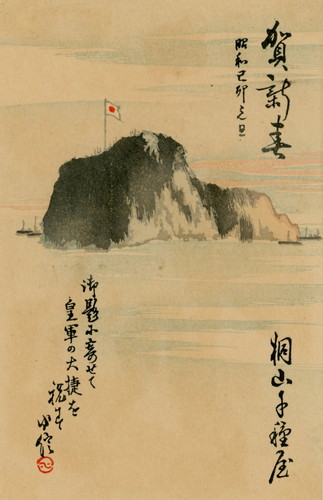 賀新春
昭和己卯元旦
御題に寄せて
皇軍の大捷を
祝す
桐山千種屋